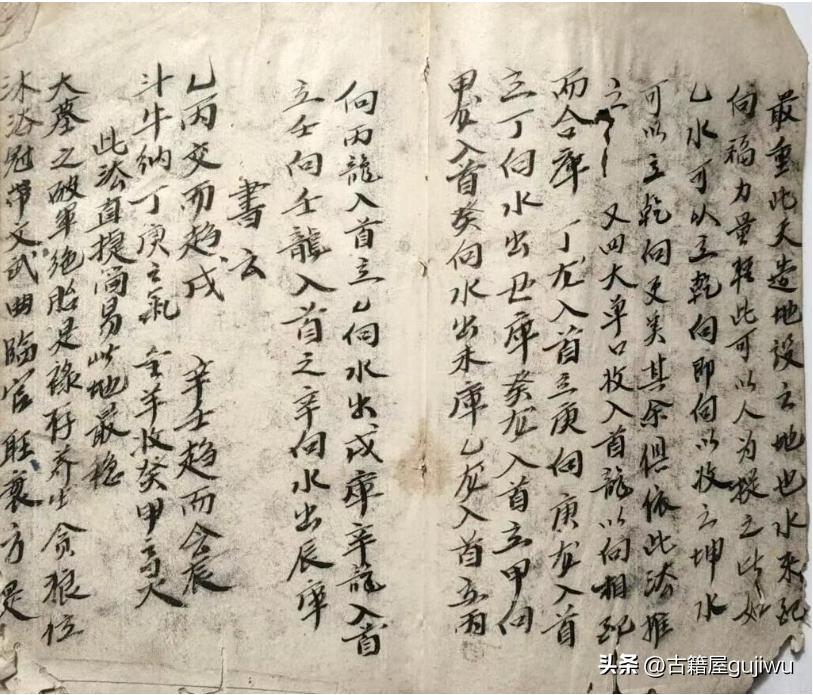 最重此天造地設之地也水來配
向福力量輕此可以人為握之此如
乙水可以立乾向即向以收之坤水
可以立乾向更美其余俱依此法推
之 又四大單口收入首龍以向相配
而合庫 丁龙入首立庚向庚龙入首
立丁向水出丑庫癸龙入首立甲向
甲龙入首癸向水出未庫乙龙入首立丙
向丙龍入首立乙向水出戌庫辛龍入首
立壬向壬龍入首立辛向水出辰庫
書云
乙丙交而趋戌 辛壬趋而会辰
斗牛納丁庚之氣 金羊收癸甲之灵
此法直捷简易此地最稳
大墓之破軍絕胎是祿存养生貪狼位
沐浴冠帶文武曲臨官旺衰方是
头条 @古籍屋gujiwu